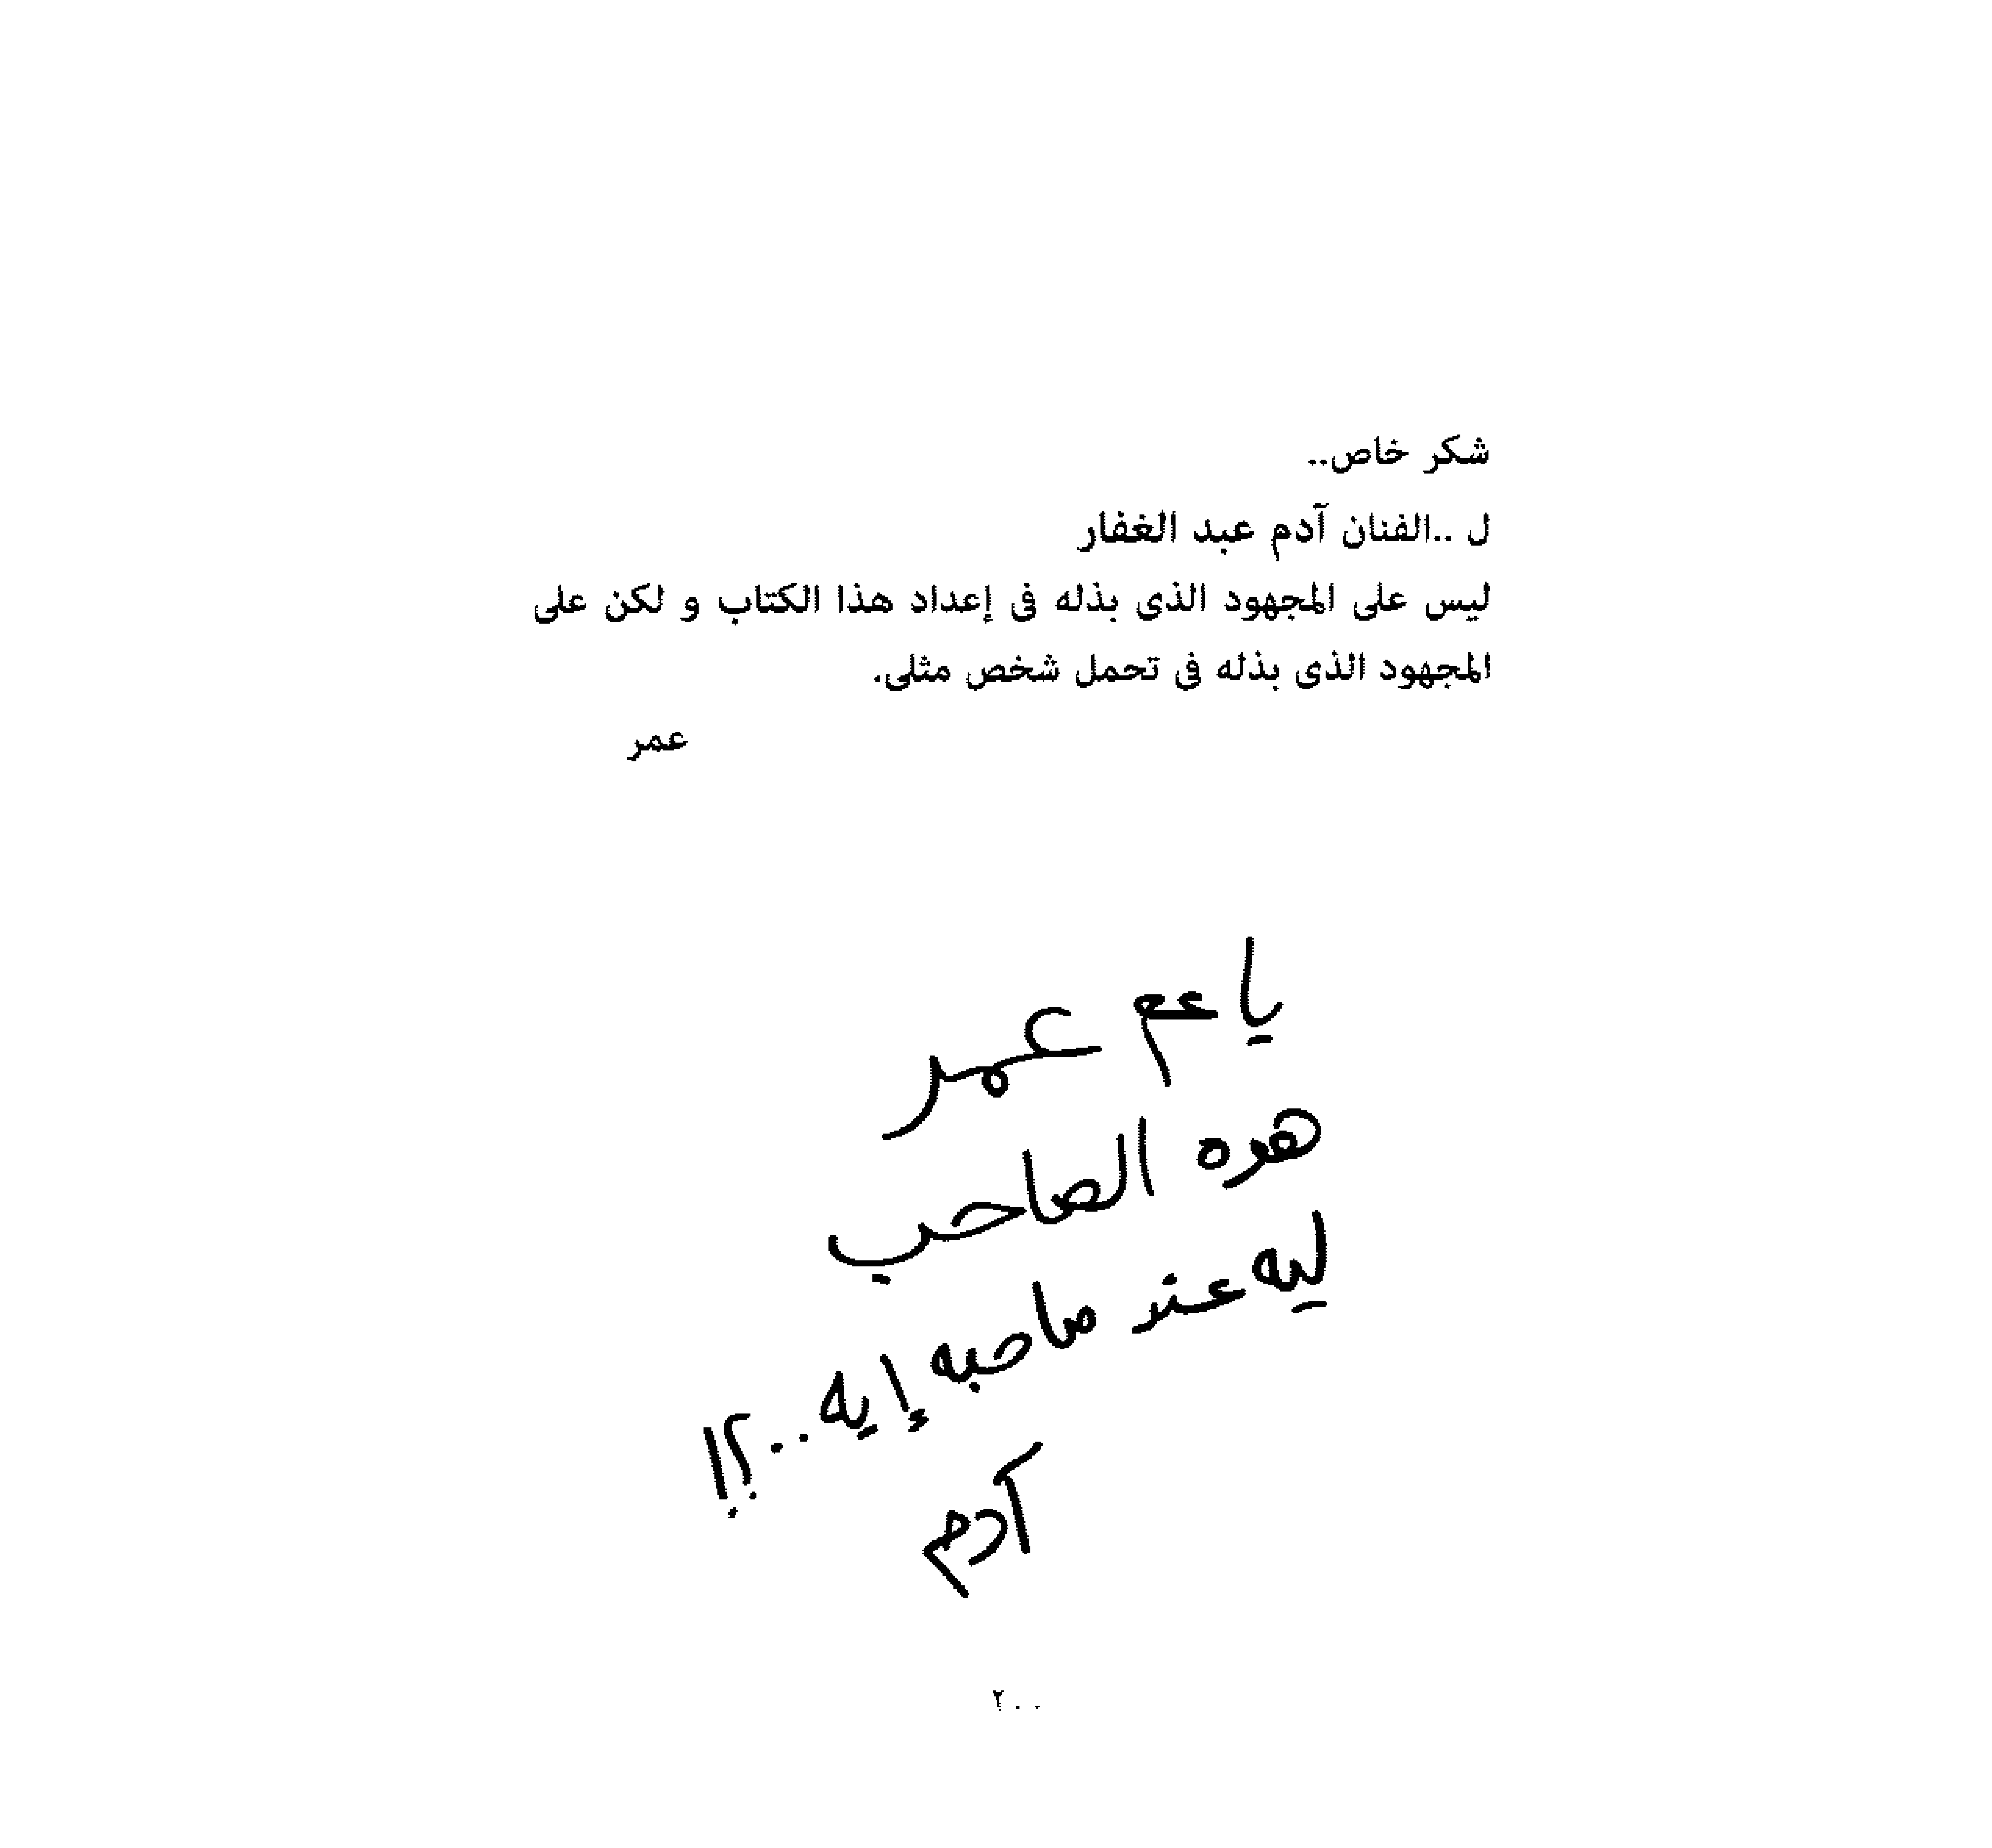 شكر خاص..
ل ..الفنان آدم عبد الغفار
ليس على المجهود الذى بذله فى إعداد هذا الكتاب و لكن على
المجهود الذى بذله فى تحمل شخص مثلى.
عمر
يا عم عمر
هوه الصاحب
ليه عند صاحبه إيه..؟!
آدم
٢٠٠